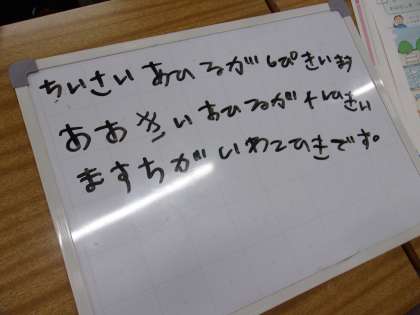 ちいさい あひるが しぴきいます
おおきい あひるが 十ひきい
ますちがいわ2ひきです。